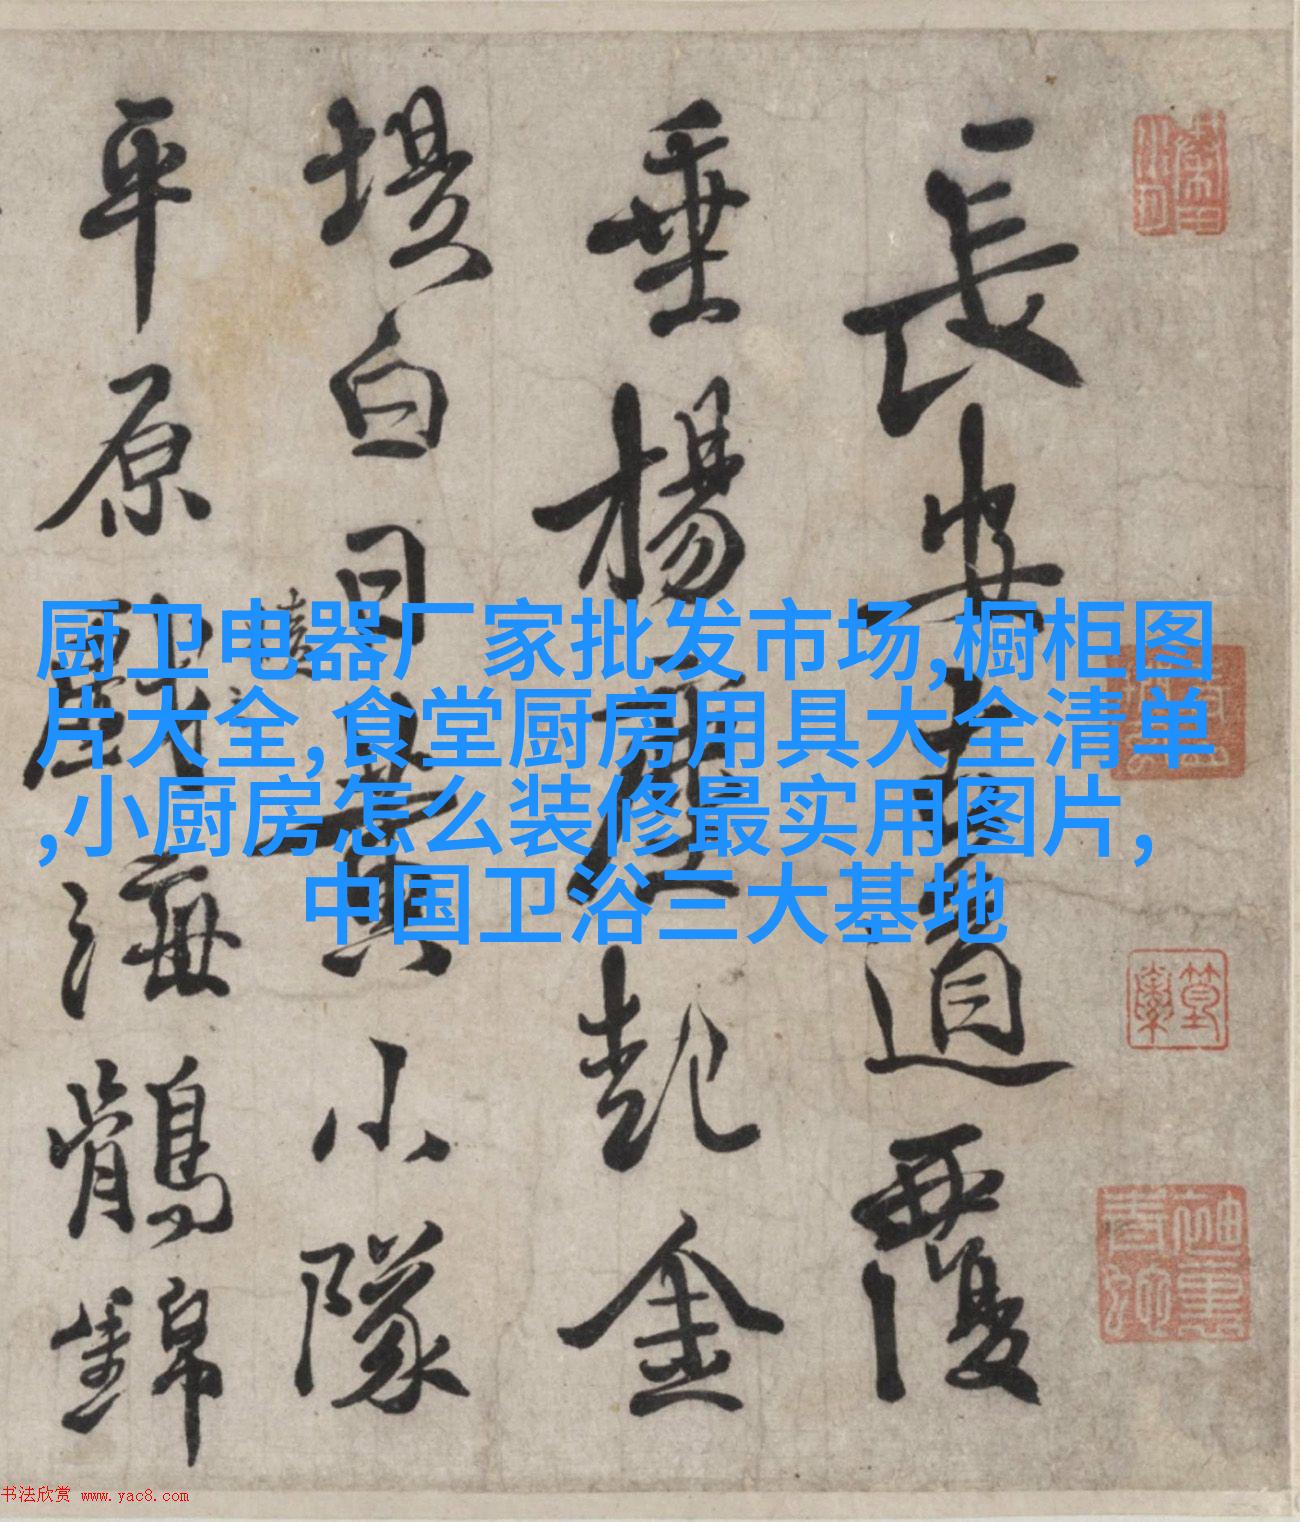 長安大道覆
垂楊塵起金
堤白日黃小隊
平原戲海鶻錦
厨卫电器厂家批发市场,橱柜图
片大全,食堂厨房用具大全清单
,小厨房怎么装修最实用图片,
中国卫浴三大基地
书法欣赏 www.yac8.com